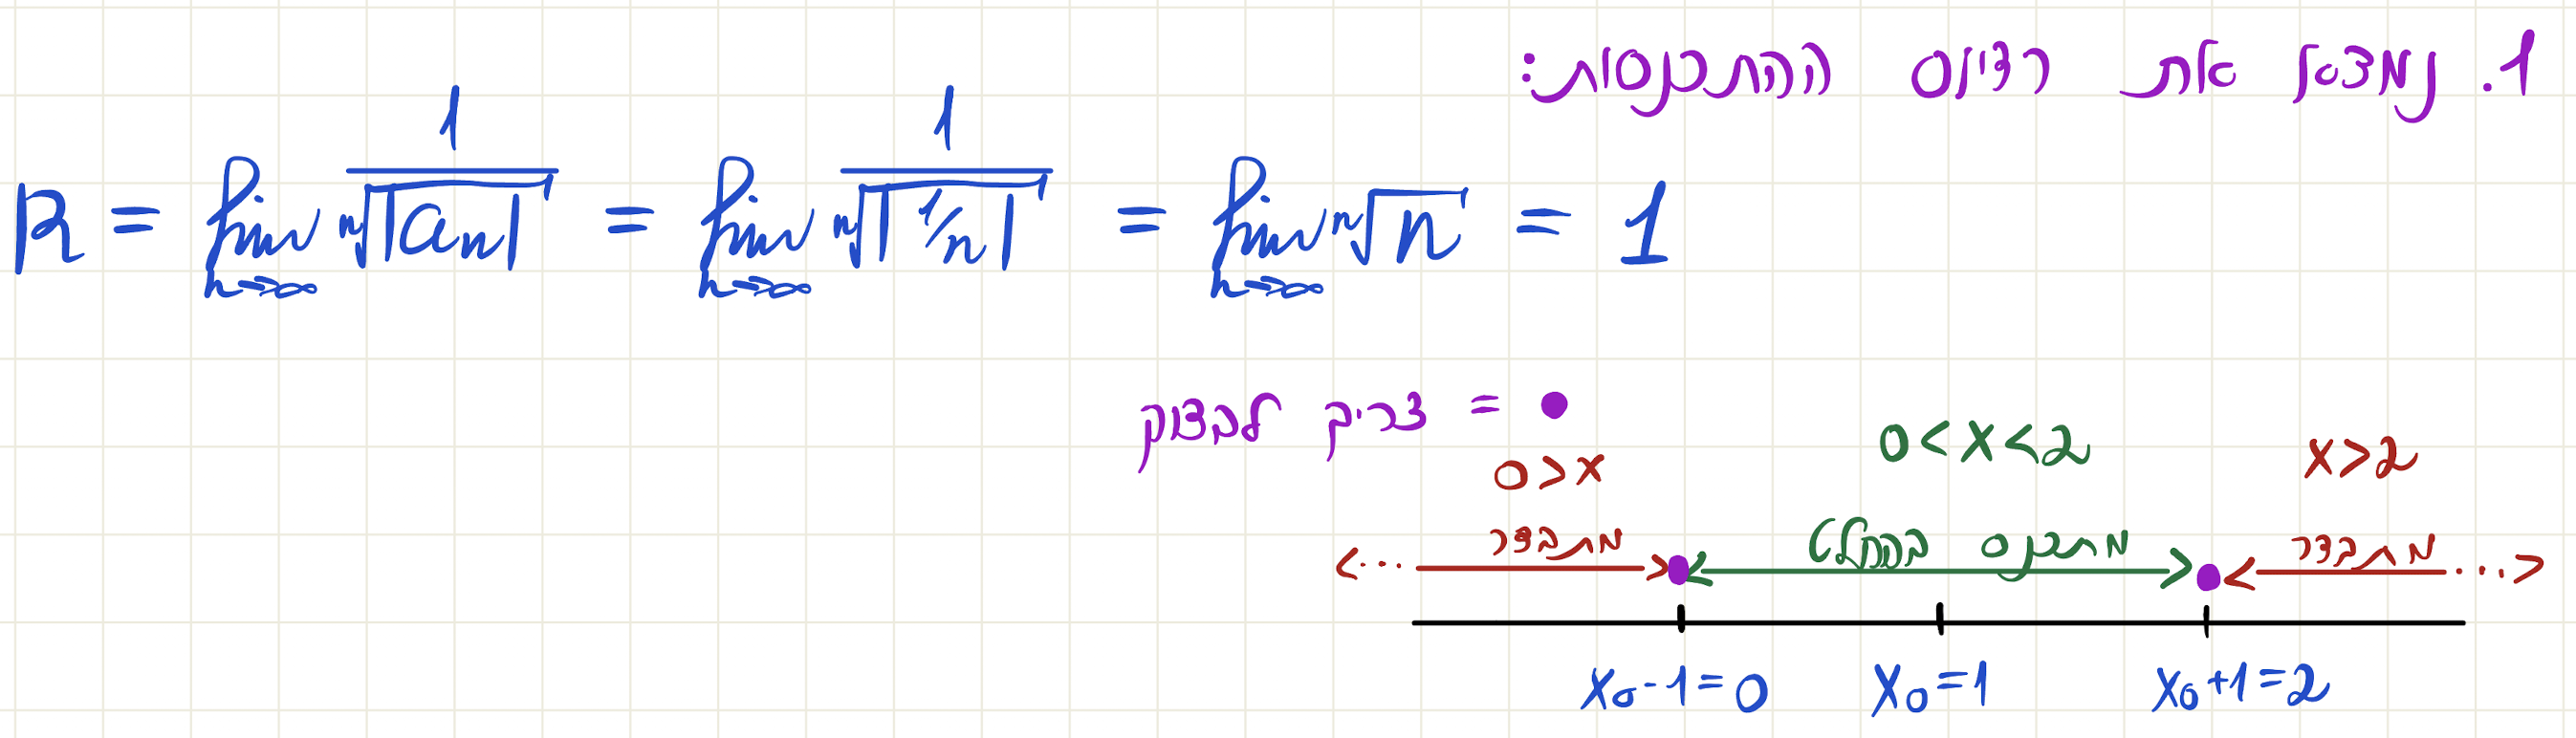 1. נמצא את רדיוס ההתכנסות:
R = lim n→∞ 1/ⁿ√|aₙ| = lim n→∞ 1/ⁿ√|1/n| = lim n→∞ ⁿ√n = 1
● = צריך לבדוק
0>x 0<x<2 x>2
מתבדר מתכנס בהחלט מתבדר
x₀-1=0 x₀=1 x₀+1=2